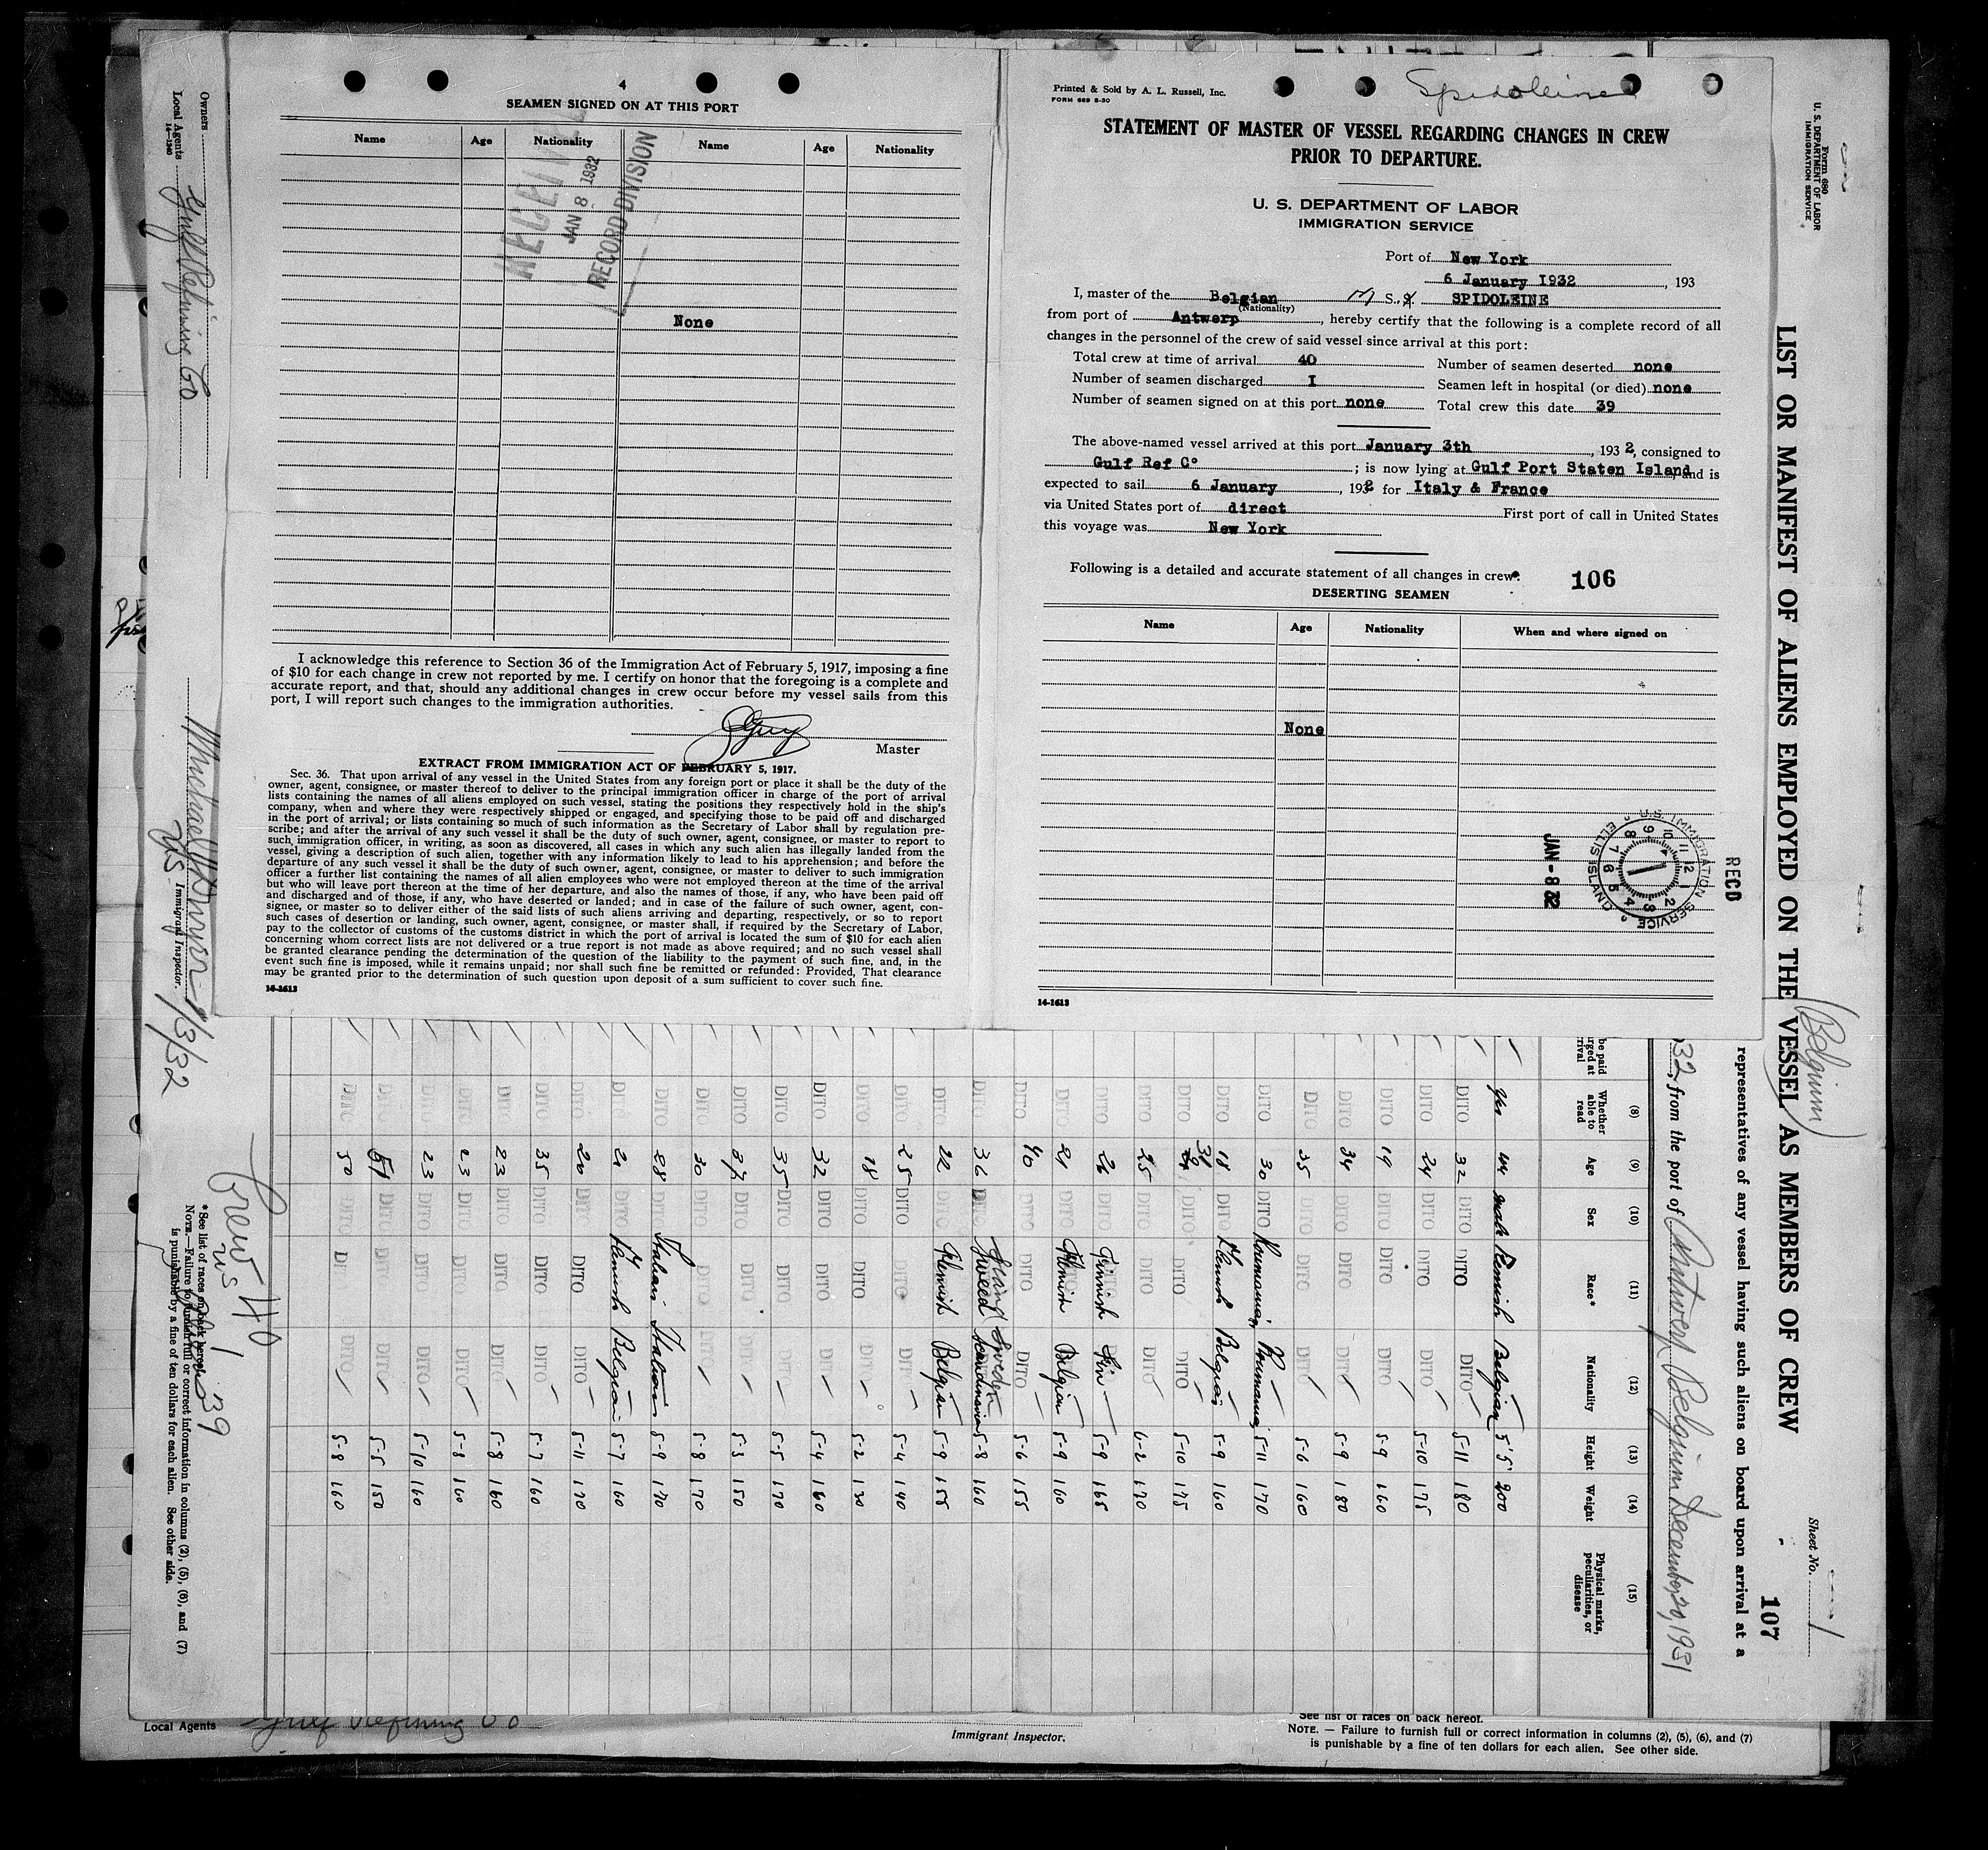 4
SEAMEN SIGNED ON AT THIS PORT
Name Age Nationality Name Age Nationality
RECEIVED
JAN 8 1932
RECORD DIVISION
None
I acknowledge this reference to Section 36 of the Immigration Act of February 5, 1917, imposing a fine
of $10 for each change in crew not reported by me. I certify on honor that the foregoing is a complete and
accurate report, and that, should any additional changes in crew occur before my vessel sails from this
port, I will report such changes to the immigration authorities.
Master
EXTRACT FROM IMMIGRATION ACT OF FEBRUARY 5, 1917.
Sec. 36. That upon arrival of any vessel in the United States from any foreign port or place it shall be the duty of the
owner, agent, consignee, or master thereof to deliver to the principal immigration officer in charge of the port of arrival
lists containing the names of all aliens employed on such vessel, stating the positions they respectively hold in the ship's
company, when and where they were respectively shipped or engaged, and specifying those to be paid off and discharged
in the port of arrival; or lists containing so much of such information as the Secretary of Labor shall by regulation pre-
scribe; and after the arrival of any such vessel it shall be the duty of such owner, agent, consignee, or master to report to
such immigration officer, in writing, as soon as discovered, all cases in which any such alien has illegally landed from the
vessel, giving a description of such alien, together with any information likely to lead to his apprehension; and before the
departure of any such vessel it shall be the duty of such owner, agent, consignee, or master to deliver to such immigration
officer a further list containing the names of all alien employees who were not employed thereon at the time of the arrival
but who will leave port thereon at the time of her departure, and also the names of those, if any, who have been paid off
and discharged and of those, if any, who have deserted or landed; and in case of the failure of such owner, agent, con-
signee, or master so to deliver either of the said lists of such aliens arriving and departing, respectively, or so to report
such cases of desertion or landing, such owner, agent, consignee, or master shall, if required by the Secretary of Labor,
pay to the collector of customs of the customs district in which the port of arrival is located the sum of $10 for each alien
concerning whom correct lists are not delivered or a true report is not made as above required; and no such vessel shall
be granted clearance pending the determination of the question of the liability to the payment of such fine, and, in the
event such fine is imposed, while it remains unpaid; nor shall such fine be remitted or refunded: Provided, That clearance
may be granted prior to the determination of such question upon deposit of a sum sufficient to cover such fine.
14-1613
Printed & Sold by A. L. Russell, Inc.
FORM 689 8-30
Spidoleine
STATEMENT OF MASTER OF VESSEL REGARDING CHANGES IN CREW
PRIOR TO DEPARTURE.
U. S. DEPARTMENT OF LABOR
IMMIGRATION SERVICE
Port of New York
6 January 1932, 193
I, master of the Belgian M S. S. SPIDOLEINE
(Nationality)
from port of Antwerp, hereby certify that the following is a complete record of all
changes in the personnel of the crew of said vessel since arrival at this port:
Total crew at time of arrival 40 Number of seamen deserted none
Number of seamen discharged I Seamen left in hospital (or died) none
Number of seamen signed on at this port none Total crew this date 39
The above-named vessel arrived at this port January 3th, 1932, consigned to
Gulf Ref Co; is now lying at Gulf Port Staten Island, and is
expected to sail 6 January, 1932 for Italy & France
via United States port of direct First port of call in United States
this voyage was New York
Following is a detailed and accurate statement of all changes in crew:
106
DESERTING SEAMEN
Name Age Nationality When and where signed on
None
RECD
U.S. IMMIGRATION SERVICE ELLIS ISLAND
JAN -8 32
14-1613
Form 680
U. S. DEPARTMENT OF LABOR
IMMIGRATION SERVICE
Sheet No. 1
LIST OR MANIFEST OF ALIENS EMPLOYED ON THE VESSEL AS MEMBERS OF CREW
(Belgium)
107
representatives of any vessel having such aliens on board upon arrival at a
32, from the port of Antwerp Belgium December 20, 1931
(8) (9) (10) (11) (12) (13) (14) (15)
Whether able to read Age Sex Race* Nationality Height Weight Physical marks, peculiarities, or disease
yes 44 male Flemish Belgian 5'5" 200
DITO 32 DITO DITO DITO 5-11 180
DITO 24 DITO DITO DITO 5-10 175
DITO 19 DITO DITO DITO 5-9 160
DITO 34 DITO DITO DITO 5-9 180
DITO 35 DITO DITO DITO 5-6 160
DITO 30 DITO Roumanian Roumania 5-11 170
DITO 18 DITO Flemish Belgian 5-9 160
DITO DITO DITO DITO 5-10 175
DITO 25 DITO DITO DITO 6-2 170
DITO 26 DITO Finnish Fin 5-9 165
DITO 21 DITO Flemish Belgian 5-9 160
DITO 40 DITO DITO DITO 5-6 155
DITO 36 DITO 5-8 160
DITO 22 DITO Flemish Belgian 5-9 155
DITO 25 DITO DITO DITO 5-4 140
DITO 18 DITO DITO DITO 5-2 130
DITO 32 DITO DITO DITO 5-4 160
DITO 35 DITO DITO DITO 5-5 170
DITO DITO DITO DITO 5-3 150
DITO 30 DITO DITO DITO 5-8 170
DITO 28 DITO Italian Italian 5-9 170
DITO 21 DITO Flemish Belgian 5-7 160
DITO 20 DITO DITO DITO 5-11 170
DITO 35 DITO DITO DITO 5-7 160
DITO 23 DITO DITO DITO 5-8 160
DITO 23 DITO DITO DITO 5-8 160
DITO 23 DITO DITO DITO 5-10 160
DITO 51 DITO DITO DITO 5-5 150
DITO 50 DITO DI DITO 5-8 160
*See list of races on back hereof.
NOTE.—Failure to furnish full or correct information in columns (2), (5), (6), and (7)
is punishable by a fine of ten dollars for each alien. See other side.
Crew 40
US 1
39
Owners
Local Agents Gulf Refining Co
14-1240
Immigrant Inspector.
1/3/32
Local Agents Gulf Refining Co
Immigrant Inspector.
See list of races on back hereof.
NOTE. — Failure to furnish full or correct information in columns (2), (5), (6), and (7)
is punishable by a fine of ten dollars for each alien. See other side.